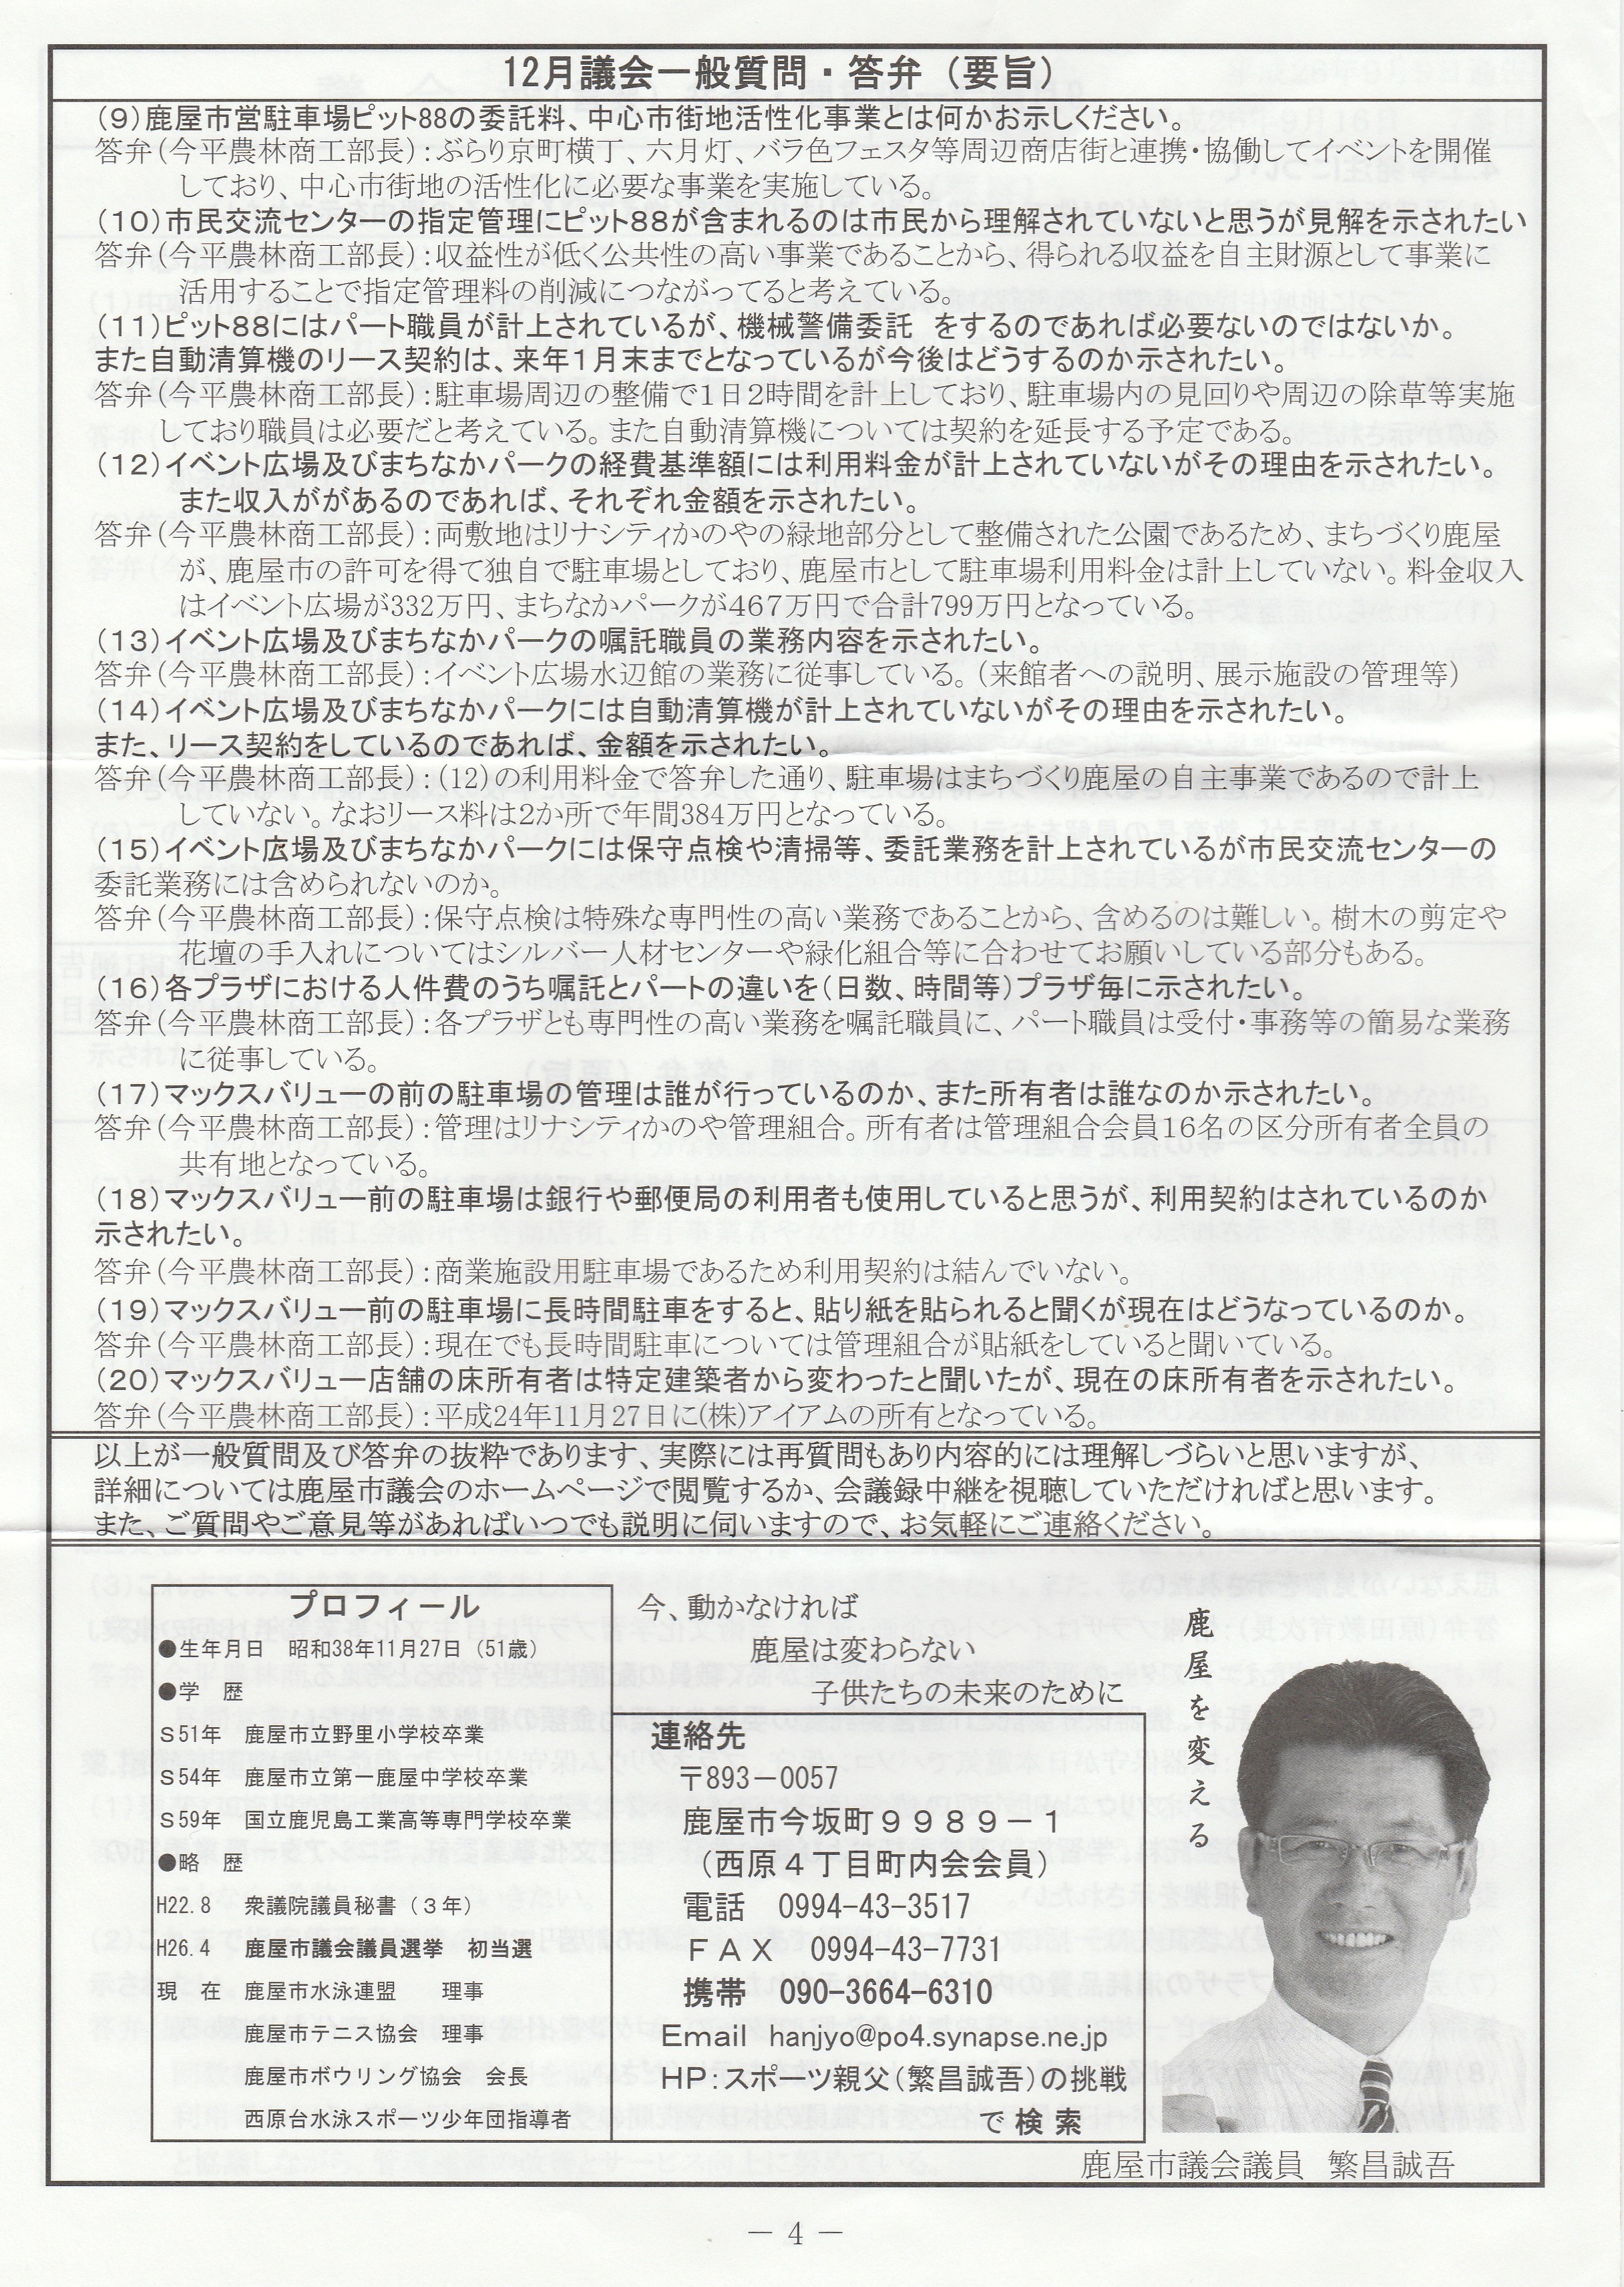 12月議会一般質問・答弁（要旨）
(9)鹿屋市営駐車場ピット88の委託料、中心市街地活性化事業とは何かお示しください。
答弁(今平農林商工部長):ぶらり京町横丁、六月灯、バラ色フェスタ等周辺商店街と連携・協働してイベントを開催
しており、中心市街地の活性化に必要な事業を実施している。
(10)市民交流センターの指定管理にピット88が含まれるのは市民から理解されていないと思うが見解を示されたい
答弁(今平農林商工部長):収益性が低く公共性の高い事業であることから、得られる収益を自主財源として事業に
活用することで指定管理料の削減につながってると考えている。
(11)ピット88にはパート職員が計上されているが、機械警備委託 をするのであれば必要ないのではないか。
また自動清算機のリース契約は、来年1月末までとなっているが今後はどうするのか示されたい。
答弁(今平農林商工部長):駐車場周辺の整備で1日2時間を計上しており、駐車場内の見回りや周辺の除草等実施
しており職員は必要だと考えている。また自動清算機については契約を延長する予定である。
(12)イベント広場及びまちなかパークの経費基準額には利用料金が計上されていないがその理由を示されたい。
また収入ががあるのであれば、それぞれ金額を示されたい。
答弁(今平農林商工部長):両敷地はリナシティかのやの緑地部分として整備された公園であるため、まちづくり鹿屋
が、鹿屋市の許可を得て独自で駐車場としており、鹿屋市として駐車場利用料金は計上していない。料金収入
はイベント広場が332万円、まちなかパークが467万円で合計799万円となっている。
(13)イベント広場及びまちなかパークの嘱託職員の業務内容を示されたい。
答弁(今平農林商工部長):イベント広場水辺館の業務に従事している。(来館者への説明、展示施設の管理等)
(14)イベント広場及びまちなかパークには自動清算機が計上されていないがその理由を示されたい。
また、リース契約をしているのであれば、金額を示されたい。
答弁(今平農林商工部長):(12)の利用料金で答弁した通り、駐車場はまちづくり鹿屋の自主事業であるので計上
していない。なおリース料は2か所で年間384万円となっている。
(15)イベント広場及びまちなかパークには保守点検や清掃等、委託業務を計上されているが市民交流センターの
委託業務には含められないのか。
答弁(今平農林商工部長):保守点検は特殊な専門性の高い業務であることから、含めるのは難しい。樹木の剪定や
花壇の手入れについてはシルバー人材センターや緑化組合等に合わせてお願いしている部分もある。
(16)各プラザにおける人件費のうち嘱託とパートの違いを(日数、時間等)プラザ毎に示されたい。
答弁(今平農林商工部長):各プラザとも専門性の高い業務を嘱託職員に、パート職員は受付・事務等の簡易な業務
に従事している。
(17)マックスバリューの前の駐車場の管理は誰が行っているのか、また所有者は誰なのか示されたい。
答弁(今平農林商工部長):管理はリナシティかのや管理組合。所有者は管理組合会員16名の区分所有者全員の
共有地となっている。
(18)マックスバリュー前の駐車場は銀行や郵便局の利用者も使用していると思うが、利用契約はされているのか
示されたい。
答弁(今平農林商工部長):商業施設用駐車場であるため利用契約は結んでいない。
(19)マックスバリュー前の駐車場に長時間駐車をすると、貼り紙を貼られると聞くが現在はどうなっているのか。
答弁(今平農林商工部長):現在でも長時間駐車については管理組合が貼紙をしていると聞いている。
(20)マックスバリュー店舗の床所有者は特定建築者から変わったと聞いたが、現在の床所有者を示されたい。
答弁(今平農林商工部長):平成24年11月27日に(株)アイアムの所有となっている。
以上が一般質問及び答弁の抜粋であります、実際には再質問もあり内容的には理解しづらいと思いますが、
詳細については鹿屋市議会のホームページで閲覧するか、会議録中継を視聴していただければと思います。
また、ご質問やご意見等があればいつでも説明に伺いますので、お気軽にご連絡ください。
プロフィール
●生年月日 昭和38年11月27日（51歳）
●学 歴
S51年 鹿屋市立野里小学校卒業
S54年 鹿屋市立第一鹿屋中学校卒業
S59年 国立鹿児島工業高等専門学校卒業
●略 歴
H22.8 衆議院議員秘書（3年）
H26.4 鹿屋市議会議員選挙 初当選
現 在 鹿屋市水泳連盟 理事
鹿屋市テニス協会 理事
鹿屋市ボウリング協会 会長
西原台水泳スポーツ少年団指導者
今、動かなければ
鹿屋は変わらない
子供たちの未来のために
連絡先
〒893－0057
鹿屋市今坂町９９８９－１
（西原４丁目町内会会員）
電話 0994-43-3517
ＦＡＸ 0994-43-7731
携帯 090-3664-6310
Email hanjyo@po4.synapse.ne.jp
HP:スポーツ親父(繁昌誠吾)の挑戦
で 検 索
鹿屋を変える
鹿屋市議会議員 繁昌誠吾
－ 4 －